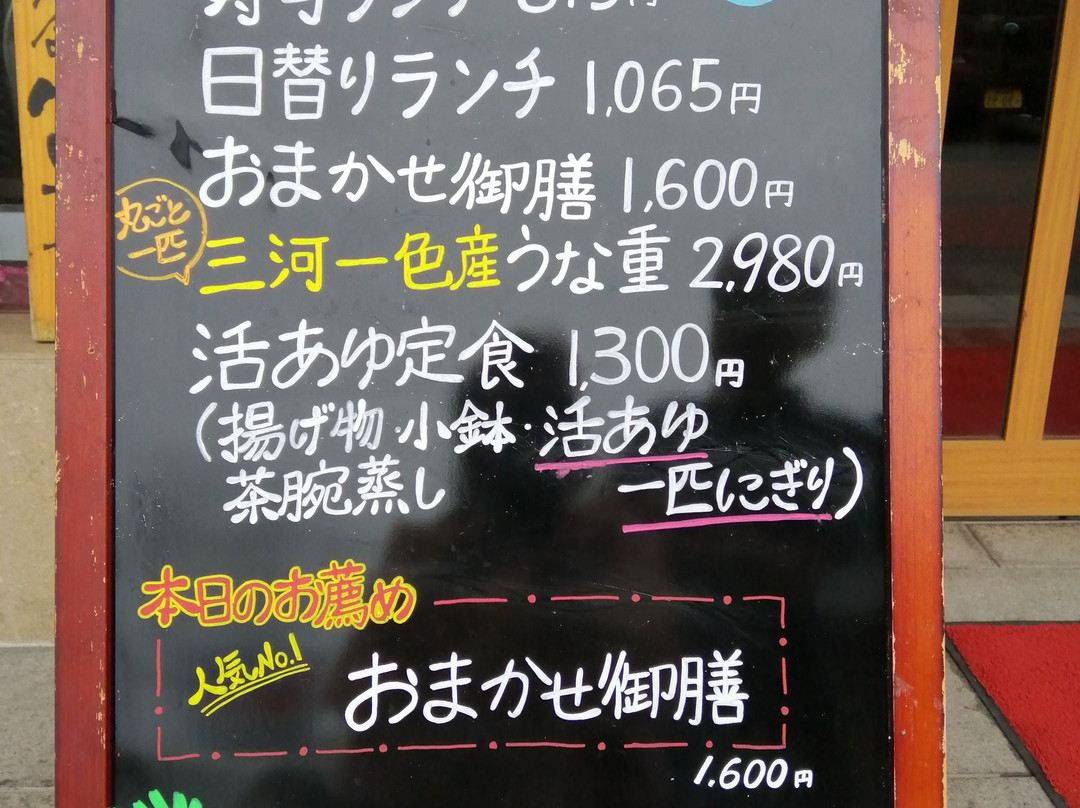 日替りランチ 1,065円
おまかせ御膳 1,600円
丸ごと
一匹
三河一色産うな重 2,980円
活あゆ定食 1,300円
(揚げ物・小鉢・活あゆ
茶腕蒸し 一匹にぎり)
本日のお薦め
人気No.1
おまかせ御膳
1,600円